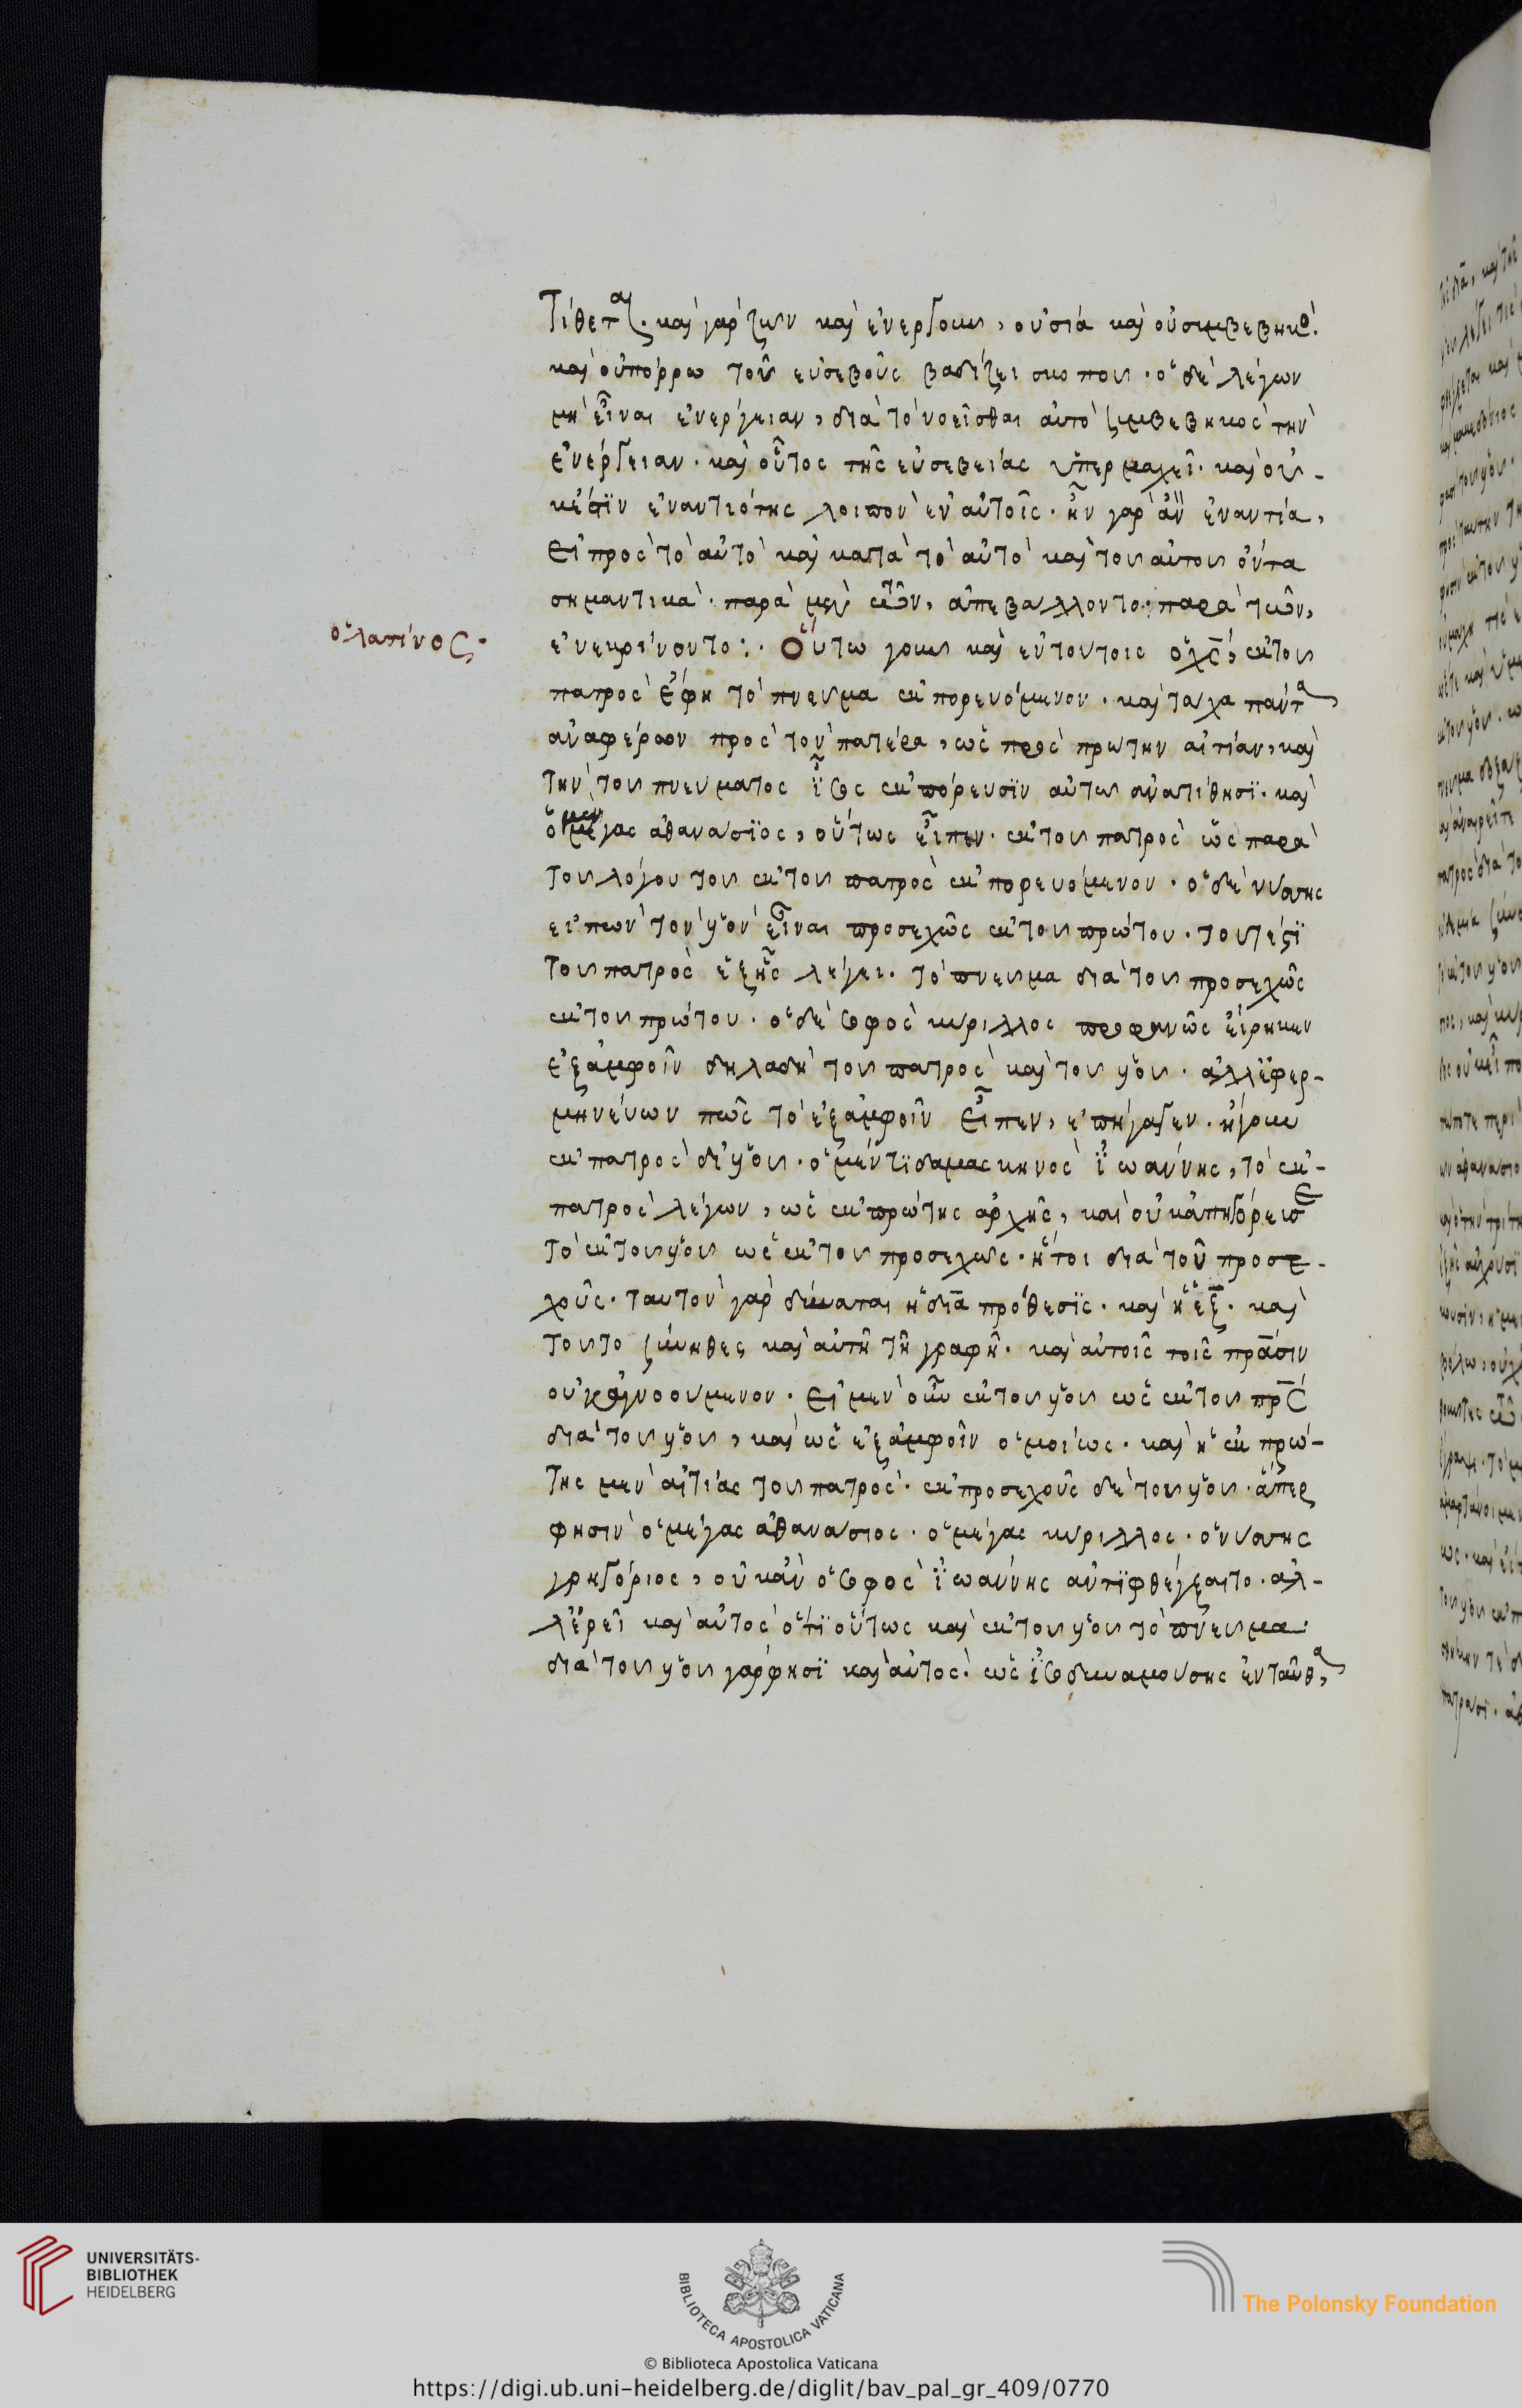 τίθεται. καὶ γὰρ ζῶν καὶ ἐνεργοῦν, οὐσία καὶ οὐ συμβεβηκός.
καὶ οὐ πόρρω τοῦ εὐσεβοῦς βαδίζει σκοποῦ. ὁ δὲ λέγων
μὴ εἶναι ἐνέργειαν, διὰ τὸ νοεῖσθαι αὐτὸ συμβεβηκὸς τὴν
ἐνέργειαν. καὶ οὗτος τῆς εὐσεβείας ὑπερμαχεῖ. καὶ οὐ-
κέστιν ἐναντιότης λοιπὸν ἐν αὐτοῖς. ἦν γὰρ ἂν ἐναντία,
εἰ πρὸς τὸ αὐτὸ καὶ κατὰ τὸ αὐτὸ καὶ τοῦ αὐτοῦ ὄντα
σημαντικὰ. παρὰ μὲν τῶν, ἀπεβάλλοντο. παρὰ τῶν,
ὁ λατίνος.
ἐνεκρίνοντο:. Οὕτω γοῦν καὶ ἐν τούτοις ὁ χς, ἐκ τοῦ
πατρὸς ἔφη τὸ πνεῦμα ἐκπορευόμενον. καὶ τἄχα πάντα
ἀναφέρων πρὸς τὸν πατέρα, ὡς πρὸς πρώτην αἰτίαν, καὶ
τὴν τοῦ πνεύματος ἴσως ἐκπόρευσιν αὐτῷ ἀνατίθησι. καὶ
ὁ μὲν μέγας ἀθανάσιος, οὕτως εἶπεν. ἐκ τοῦ πατρὸς ὡς παρὰ
τοῦ λόγου τοῦ ἐκ τοῦ πατρὸς ἐκπορευόμενον. ὁ δὲ νύσσης
εἰπὼν τὸν υἱὸν εἶναι προσεχῶς ἐκ τοῦ πρώτου. τουτέστι
τοῦ πατρὸς ἑξῆς λέγει. τὸ πνεῦμα διὰ τοῦ προσεχῶς
ἐκ τοῦ πρώτου. ὁ δὲ σοφὸς κύριλλος προφανῶς εἴρηκεν
ἐξ ἀμφοῖν δηλαδὴ τοῦ πατρὸς καὶ τοῦ υἱοῦ. ἀλλ' ἐφερ-
μηνεύων πῶς τὸ ἐξ ἀμφοῖν εἶπεν, ἐπήγαγεν. ἤγουν
ἐκ πατρὸς δι' υἱοῦ. ὁ μέντι δαμασκηνὸς ἰωάννης, τὸ ἐκ
πατρὸς λέγων, ὡς ἐκ πρώτης ἀρχῆς, καὶ οὐκ ἀπηγόρευσε
τὸ ἐκ τοῦ υἱοῦ ὡς ἐκ τοῦ προσεχῶς. ἤτοι διὰ τοῦ προσε-
χοῦς. ταυτὸν γὰρ δύναται ἡ διὰ πρόθεσις. καὶ ἡ ἐξ. καὶ
τοῦτο σύνηθες καὶ αὐτῆ τῆ γραφῆ. καὶ αὐτοῖς τοῖς πρασιν
οὐκ ἀγνοούμενον. εἰ μὲν οὖν ἐκ τοῦ υἱοῦ ὡς ἐκ τοῦ πρς
διὰ τοῦ υἱοῦ, καὶ ὡς ἐξ ἀμφοῖν ὁμοίως. καὶ ἡ ἐκ πρώ-
της μὲν αἰτίας τοῦ πατρὸς. ἐκ προσεχοῦς δὲ τοῦ υἱοῦ. ἅπερ
φησὶν ὁ μέγας ἀθανάσιος. ὁ μέγας κύριλλος. ὁ νύσσης
γρηγόριος, οὐκ ἂν ὁ σοφὸς ἰωάννης ἀντιφθέγξαιτο. ἀλ-
λ' ἐρεῖ καὶ αὐτὸς ὅτι οὕτως καὶ ἐκ τοῦ υἱοῦ τὸ πνεῦμα.
διὰ τοῦ υἱοῦ γὰρ φησὶ καὶ αὐτὸς. ὡς ἰσοδυναμούσης ἐνταῦθα
UNIVERSITÄTS-
BIBLIOTHEK
HEIDELBERG
BIBLIOTECA APOSTOLICA VATICANA
The Polonsky Foundation
© Biblioteca Apostolica Vaticana
https://digi.ub.uni-heidelberg.de/diglit/bav_pal_gr_409/0770